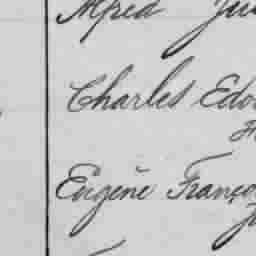 Alfred Ju
Charles Edo
Eugène Franço